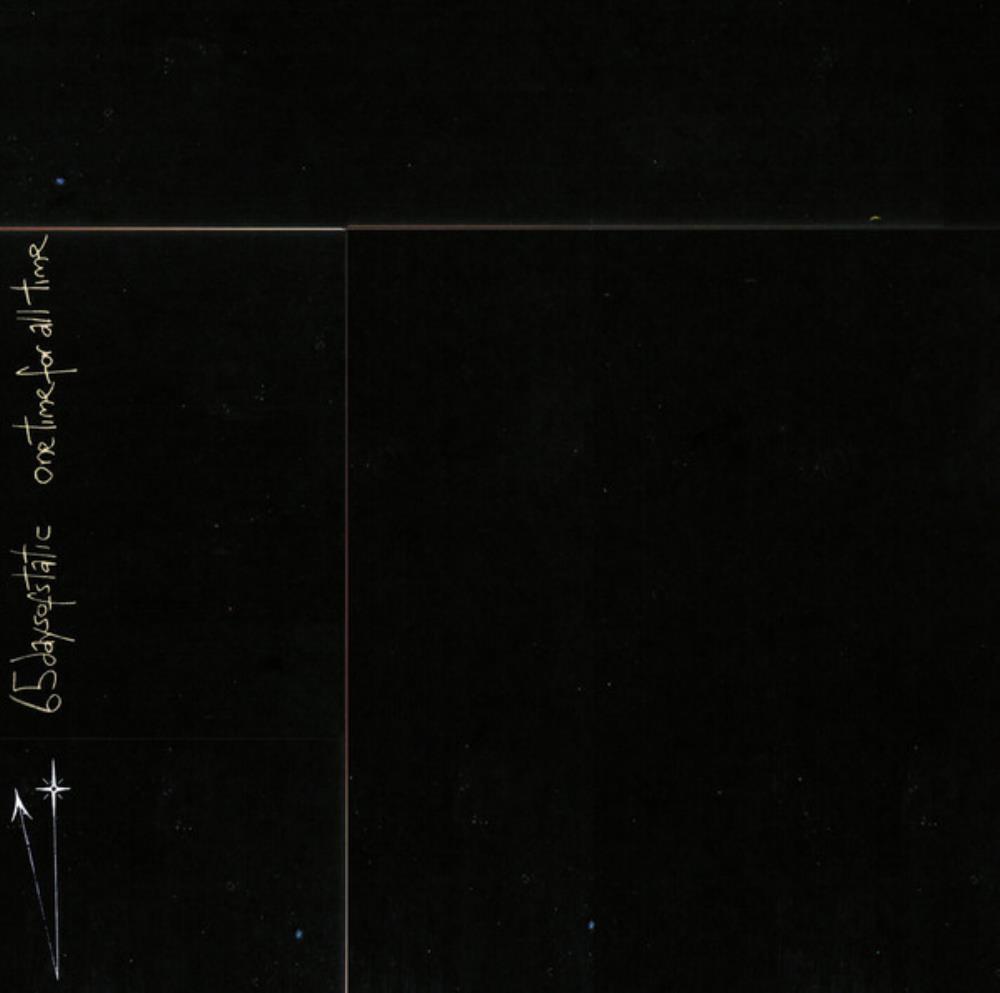 65daysofstatic one time for all time